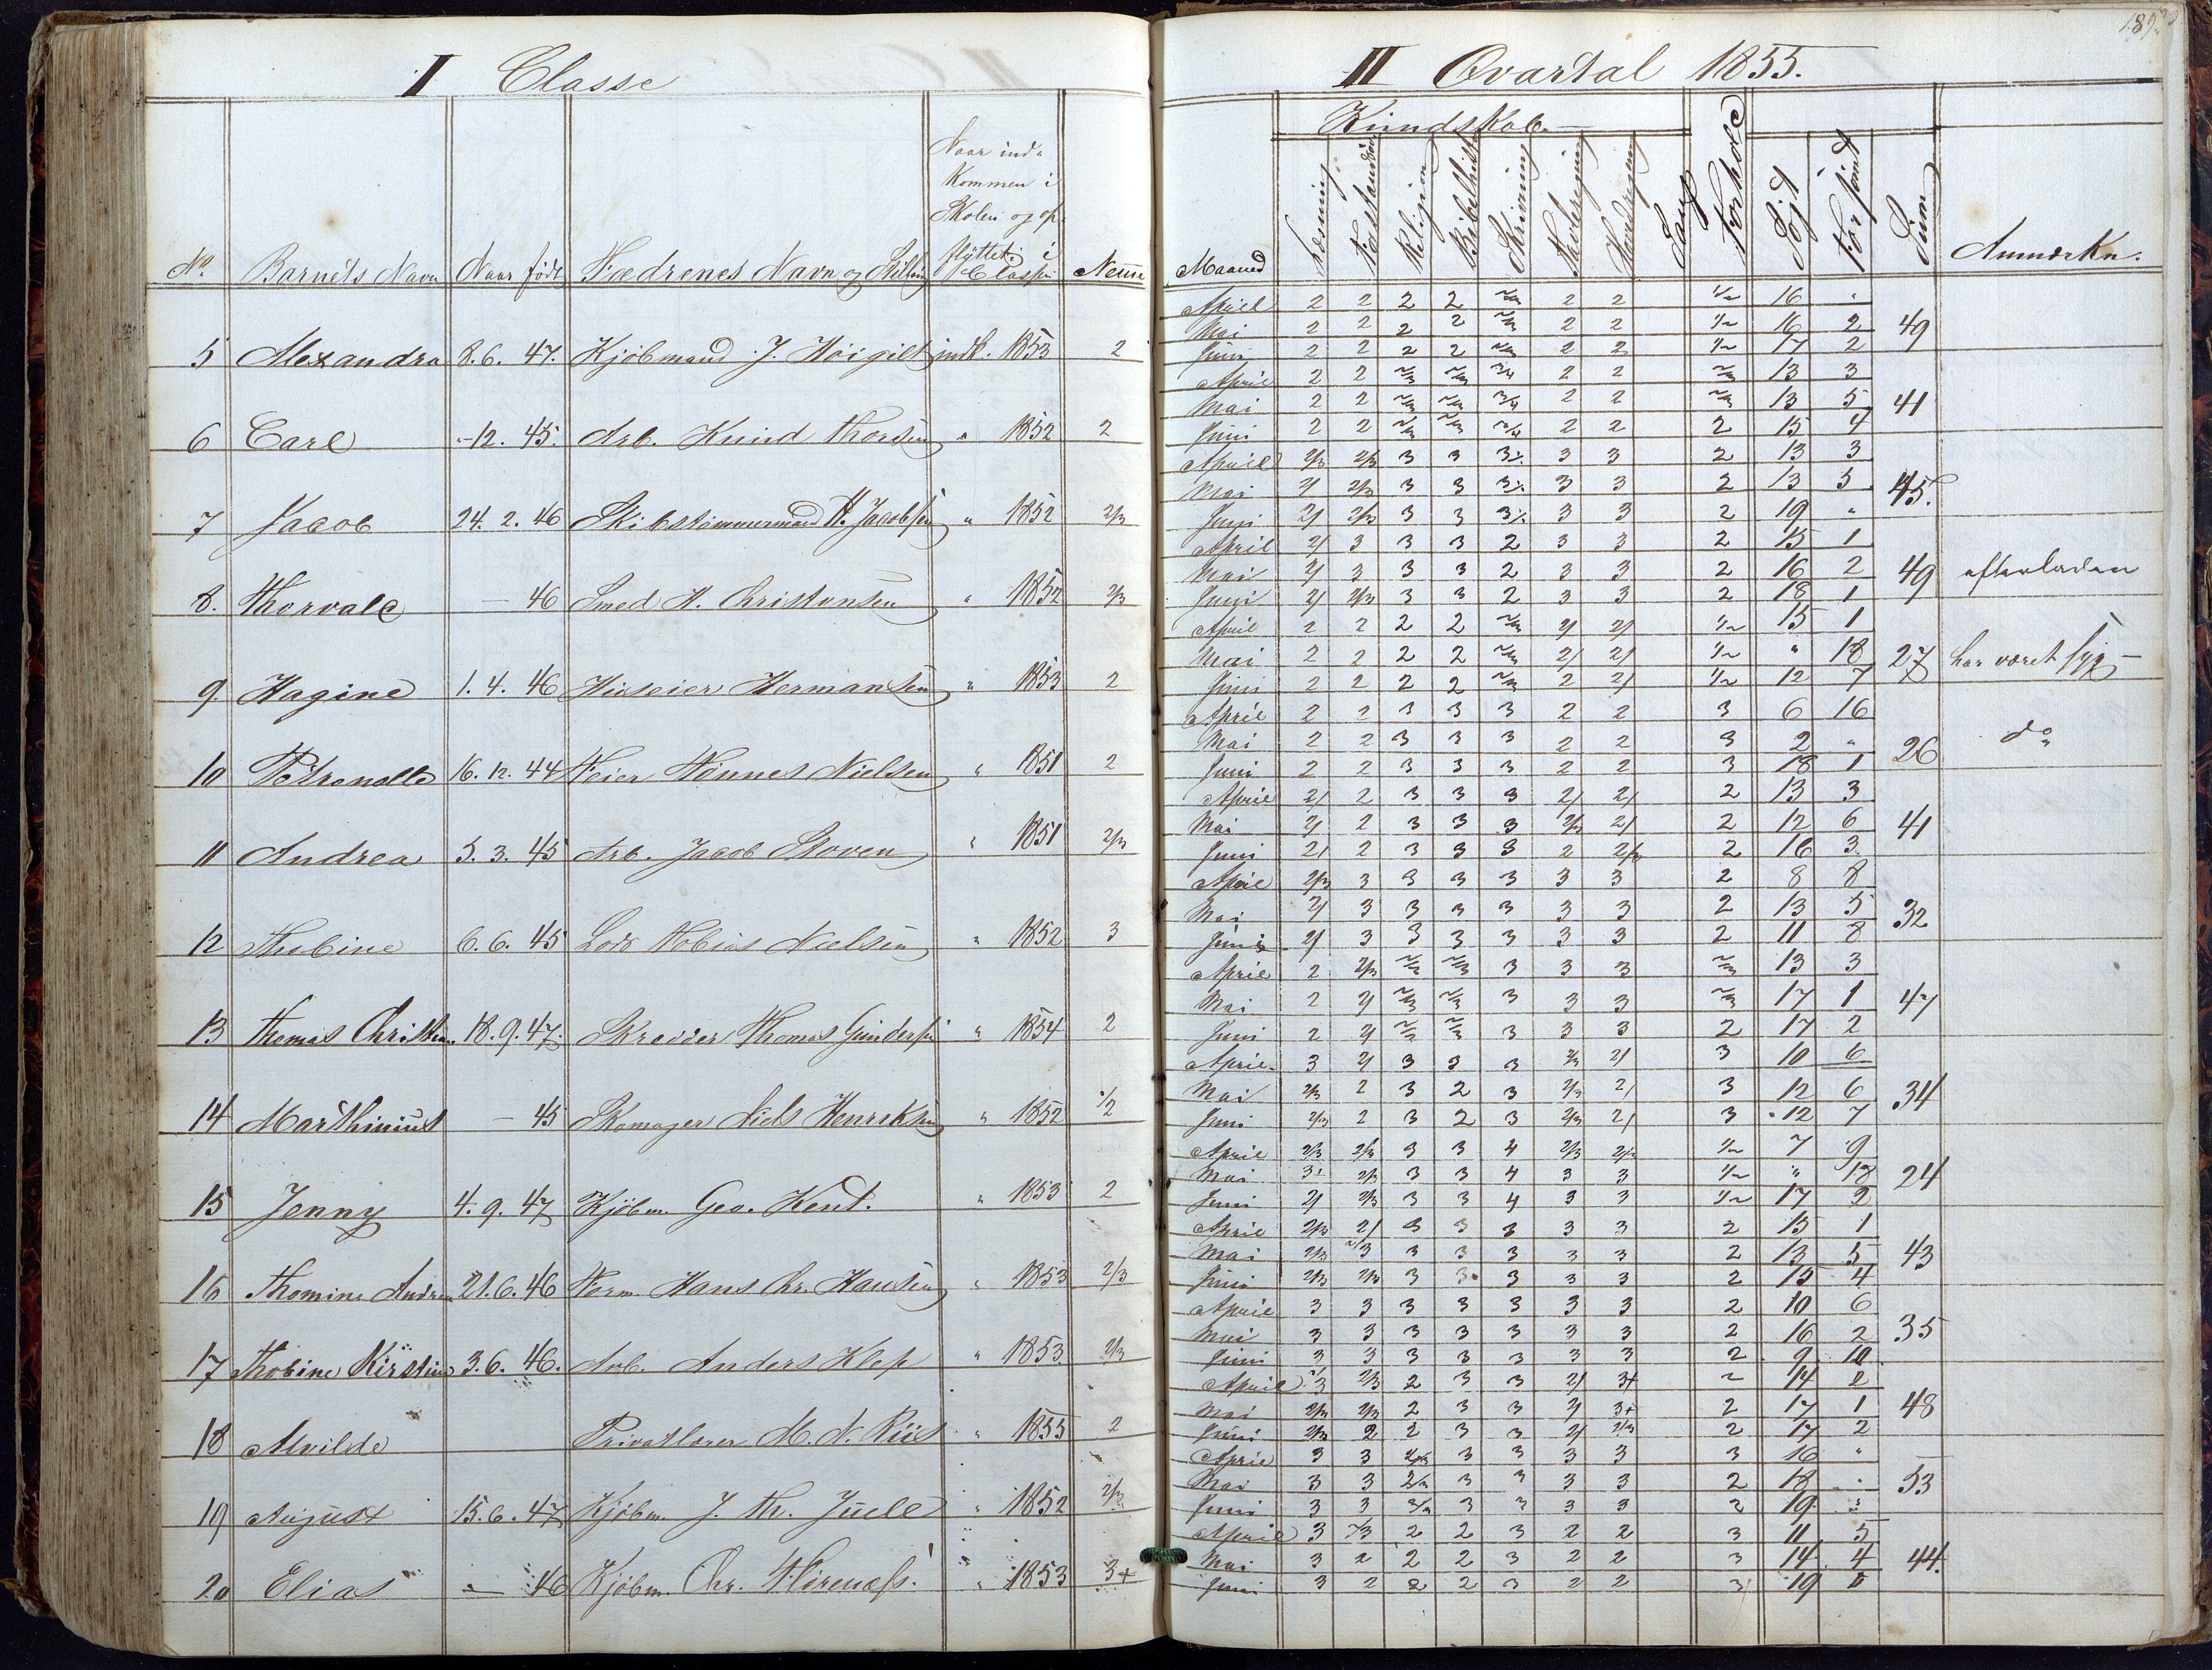 I Classe
II Qvartal 1855.
No. Barnets Navn Naar født Forældrenes Navn og Stilling
Naar ind-
kommen i
Skolen og op-
flyttet i
Classen
Nevne
Maaned Kundskab. Læsning Religion Bibelhistorie Skrivning Tavleregning Hovedregning Sang Forhold Søgt Forsømt Sum Anmærkn.
5 Alexandra 8.6. 47. Kjöbmand J. Höigilt indk. 1853 2
April 2 2 2 2 2/3 2 2 1/2 16 "
Mai 2 2 2 2 2/3 2 2 1/2 16 2 49
Juni 2 2 2 2 2/3 2 2 1/2 17 2
6 Carl "-12. 45. Arb. Knud Thorsen " 1852 2
April 2 2 2/3 2/3 3/4 2 2 2/3 13 3
Mai 2 2 2/3 2/3 3/4 2 2 2/3 13 5 41
Juni 2 2 2/3 2/3 3/4 2 2 2 15 4
7 Jacob 24. 2. 46 Skibstömmermand H. Jacobsen " 1852 2/3
April 2/3 2/3 3 3 3/. 3 3 2 13 3
Mai 2/ 2/3 3 3 3/. 3 3 2 13 5 45.
Juni 2/ 2/3 3 3 3/. 3 3 2 19 "
8. Thorvald — 46 Smed A. Christensen " 1852 2/3
April 2/ 3 3 3 2 3 3 2 15 1
Mai 2/ 3 3 3 2 3 3 2 16 2 49 efterladen
Juni 2/ 2/3 3 3 2 3 3 2 18 1
9. Hagine 1. 4. 46 Huseier Hermansen " 1853 2
April 2 2 2 2 2/3 2/ 2/ 1/2 15 1
Mai 2 2 2 2 2/3 2/ 2/ 1/2 " 18 27 har været syg —
Juni 2 2 2 2 2/3 2 2/ 1/2 12 7
10 Petronelle 16. 12. 44 Hannes Nielsen " 1851 2
April 2 2 3 3 3 2 2 3 6 16
Mai 2 2 3 3 3 2 2 3 2 " 26 do
Juni 2 2 3 3 3 2 2 3 18 1
11 Andrea 5. 3. 45 Arb. Jacob Stoven " 1851 2/3
April 2/ 2 3 3 3 2/ 2/ 2 13 3
Mai 2/ 2 3 3 3 2/3 2/ 2 12 6 41
Juni 2/ 2 3 3 3 2 2/3 2 16 3.
12 Thobine 6. 6. 45 Lods Tobias Nielsen " 1852 3
April 2/3 3 3 3 3 3 3 2 8 8
Mai 2/ 3 3 3 3 3 3 2 13 5 32
Juni 2/ 3 3 3 3 3 3 2 11 8
13 Thomas Christian 18. 9. 47. Skrædder Thomas Gundersen " 1854 2
April 2 2/3 2/3 2/3 3 3 3 2/3 13 3
Mai 2 2/ 2/3 2/3 3 3 3 2/3 17 1 47
Juni 2 2/ 2/3 2/3 3 3 3 2 17 2
14 Marthinius — 45 Skomager Niels Henriksen " 1852 1/2
April 3 2/ 3 3 3 2/3 2/ 3 10 6
Mai 2/3 2 3 2 3 2/3 2/ 3 12 6 34
Juni 2/3 2 3 2 3 2/3 2/ 3 12 7
15 Jenny 4. 9. 47 Kjöbm. Geo. Kent. " 1853 2
April 2/3 2/3 3 3 4 2/3 2/3 1/2 7 9
Mai 3 2/3 3 3 4 3 3 1/2 " 18 24
Juni 2/ 2/3 3 3 4 3 3 1/2 17 2
16 Thomine Andrea 21. 6. 46 Form. Hans Chr. Hansen " 1853 2/3
April 2/3 2/ 3 3 3 3 3 2 15 1
Mai 2/3 2/3 3 3 3 3 3 2 13 5 43
Juni 2/3 2/3 3 3 3 3 3 2 15 4
17 Thobine Kirstine 3. 6. 46. Arb. Anders Klep " 1853 2/3
April 3 3 3 3 3 3 3 2 10 6
Mai 3 3 3 3 3 3 3 2 16 2 35
Juni 3 3 3 3 3 3 3 2 9 10
18 Alvilde Privatlærer M. N. Riis " 1855 2
April 3 2/3 2 3 3 2/ 3+ 2 14 2
Mai 2/3 2/3 2 3 3 2/ 3+ 2 17 1 48
Juni 2/3 2 2 3 3 2/ 2/3 2 17 2
19 August 15. 6. 47 Kjöbm. J. Th. Juell " 1852 2/3
April 3 3 2/3 3 3 3 3 3 16 "
Mai 3 3 2/3 3 3 3 3 2 18 . 53
Juni 3 3 2/3 3 3 3 3 2 19 "
20 Elias — 46 Kjöbm. Chr. " 1853 3+
April 3 2/3 2 2 3 2 2 3 11 5
Mai 3 2 2 2 3 2 2 3 14 4 44.
Juni 3 2 2 2 3 2 2 3 19